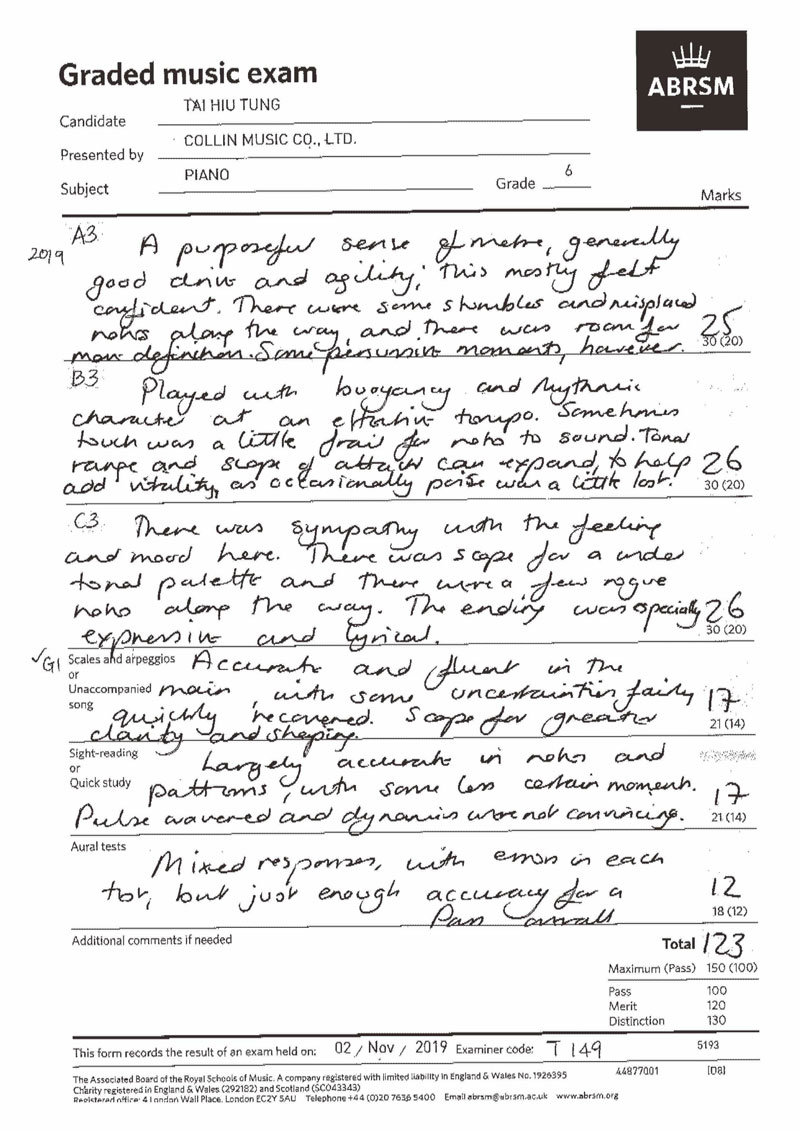 Graded music exam
ABRSM
Candidate TAI HIU TUNG
Presented by COLLIN MUSIC CO., LTD.
Subject PIANO Grade 6
Marks
2019 A3 A purposeful sense of metre, generally
good drive and agility; this mostly felt
confident. There were some stumbles and misplaced
notes along the way, and there was room for
more definition. Some persuasive moments, however. 25
30 (20)
B3 Played with buoyancy and rhythmic
character at an effective tempo. Sometimes
touch was a little frail for notes to sound. Tonal
range and scope of attack can expand, to help 26
add vitality, as occasionally poise was a little lost. 30 (20)
C3 There was sympathy with the feeling
and mood here. There was scope for a wider
tonal palette and there were a few rogue
notes along the way. The ending was especially 26
expressive and lyrical. 30 (20)
✓G1 Scales and arpeggios Accurate and fluent in the
or
Unaccompanied main, with some uncertainties fairly 17
song quickly recovered. Scope for greater 21 (14)
clarity and shaping.
Sight-reading Largely accurate in notes and
or
Quick study patterns, with some less certain moments. 17
Pulse wavered and dynamics were not convincing. 21 (14)
Aural tests
Mixed responses, with errors in each
test, but just enough accuracy for a 12
Pass overall 18 (12)
Additional comments if needed
Total 123
Maximum (Pass) 150 (100)
Pass 100
Merit 120
Distinction 130
This form records the result of an exam held on: 02 / Nov / 2019 Examiner code: T 149 5193
44877001 [D8]
The Associated Board of the Royal Schools of Music. A company registered with limited liability in England & Wales No. 1926395
Charity registered in England & Wales (292182) and Scotland (SC04343)
Registered office: 4 London Wall Place, London EC2Y 5AU Telephone +44 (0)20 7636 5400 Email abrsm@abrsm.ac.uk www.abrsm.org